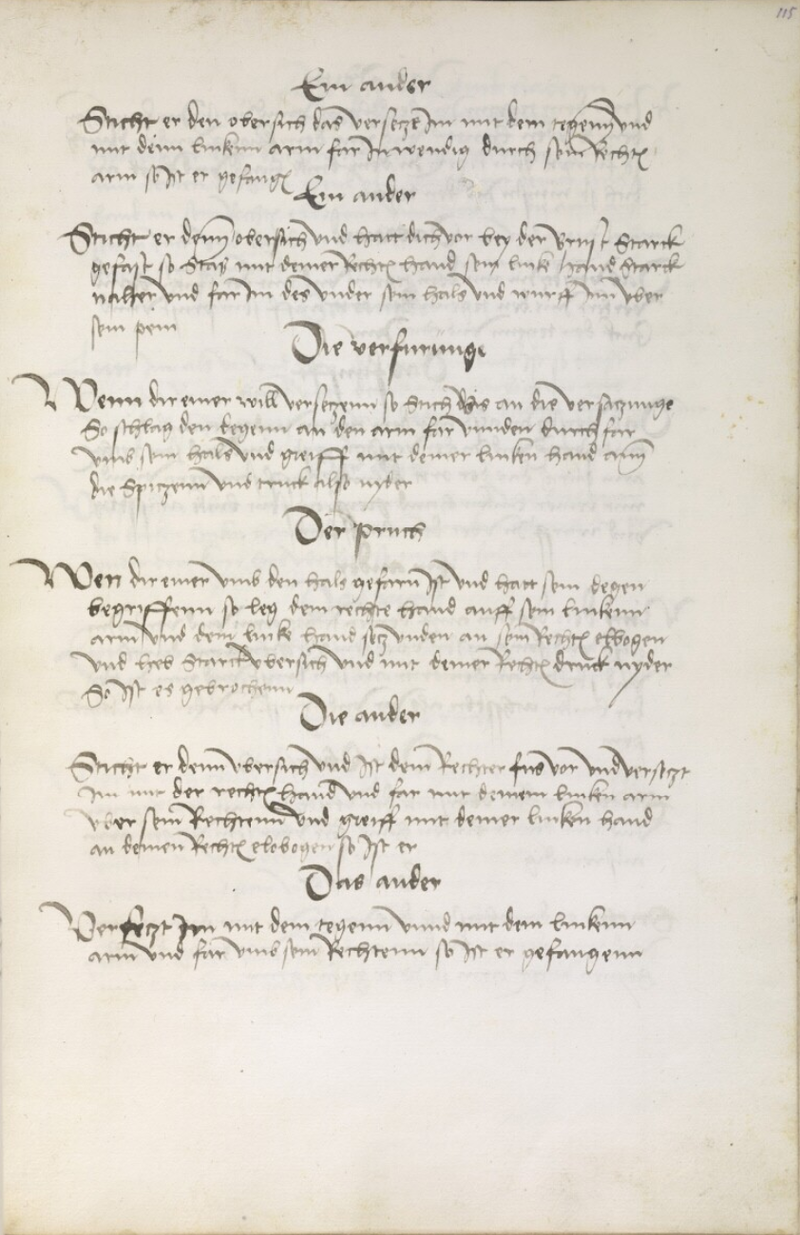 115
Ein ander
Sticht er den obersich das versetzt Im mit dem tegenn vnd
mit dein linkenn arm far Inwendig durch sein Recht
arm so Ist er gefang
Ein ander
Sticht er denn obersich vnd hatt dich vor bey der Brust Starck
gefast so Slag mit deiner Recht hand sein linke hand Starck
vnd far Im des vnder sein hals vnd wurff Inn vber
sein pein
Die verfurung
Wenn dir einer will versetzenn so Stich Als an die versatzunge
So schlag den degenn an den arm far vnnden durch far
vmb sein hals vnd greiff mit deiner linken hand ann
die Spitzenn vnd truck also nyder
Der pruch
Wen dir einer vmb den hals gefarn Ist vnd hatt sein degen
begriffenn so leg dein rechte hand auff sein linkenn
arm vnd dein linke hand setz vnden an sein Recht elbogen
vnd heb Starck vbersich vnd mit deiner Recht druck nyder
So Ist es gebrochenn
Die ander
Sticht er denn vbersich vnd Ist dein Rechter fus vor vnd versetzt
Im mit der recht hand vnd far mit deinem linken arm
vber sein Rechtenn vnd greiff mit deiner linken hand
an deinen Recht elobogen so Ist er
Das ander
Versetzt Im mit dem tegenn vnnd mit dem linkenn
arm vnd far vmb sein Rechtenn so Ist er gefangenn